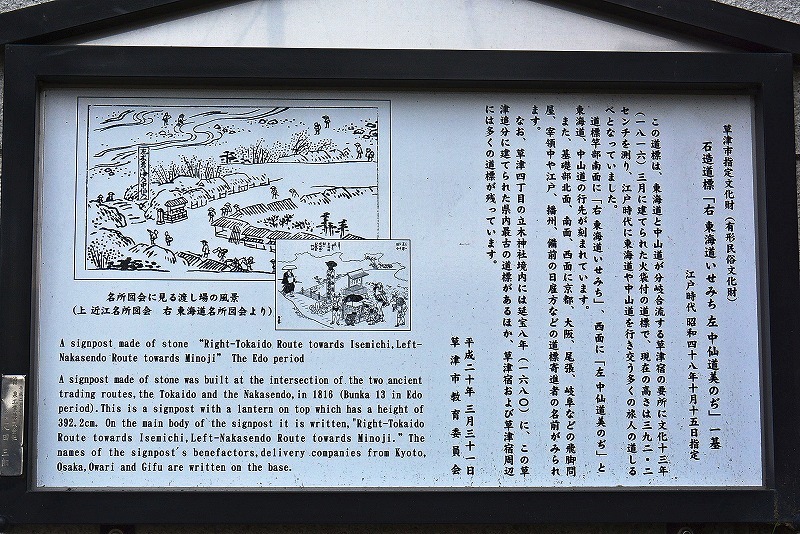 草津市指定文化財（有形民俗文化財）
石造道標「右 東海道いせみち 左 中仙道美のぢ」 一基
江戸時代 昭和四十八年十月十五日指定
この道標は、東海道と中山道が分岐合流する草津宿の要所に文化十三年
（一八一六）三月に建てられた火袋付の道標で、現在の高さは三九二・二
センチを測り、江戸時代に東海道や中山道を行き交う多くの旅人の道しる
べとなっていました。
道標竿部南面に「右 東海道いせみち」、西面に「左 中仙道美のぢ」と
東海道、中山道の行先が刻まれています。
また、基礎部北面、南面、西面に京都、大阪、尾張、岐阜などの飛脚問
屋、宰領中や江戸、播州、備前の日雇方などの道標寄進者の名前がみられ
ます。
なお、草津四丁目の立木神社境内には延宝八年（一六八〇）に、この草
津追分に建てられた県内最古の道標があるほか、草津宿および草津宿周辺
には多くの道標が残っています。
平成二十年 三月三十一日
草津市教育委員会
名所図会に見る渡し場の風景
(上 近江名所図会 右 東海道名所図会より)
A signpost made of stone "Right-Tokaido Route towards Isemichi,Left-
Nakasendo Route towards Minoji" The Edo period
A signpost made of stone was built at the intersection of the two ancient
trading routes, the Tokaido and the Nakasendo, in 1816 (Bunka 13 in Edo
period).This is a signpost with a lantern on top which has a height of
392.2cm. On the main body of the signpost it is written,"Right-Tokaido
Route towards Isemichi,Left-Nakasendo Route towards Minoji." The
names of the signpost's benefactors,delivery companies from Kyoto,
Osaka,Owari and Gifu are written on the base.